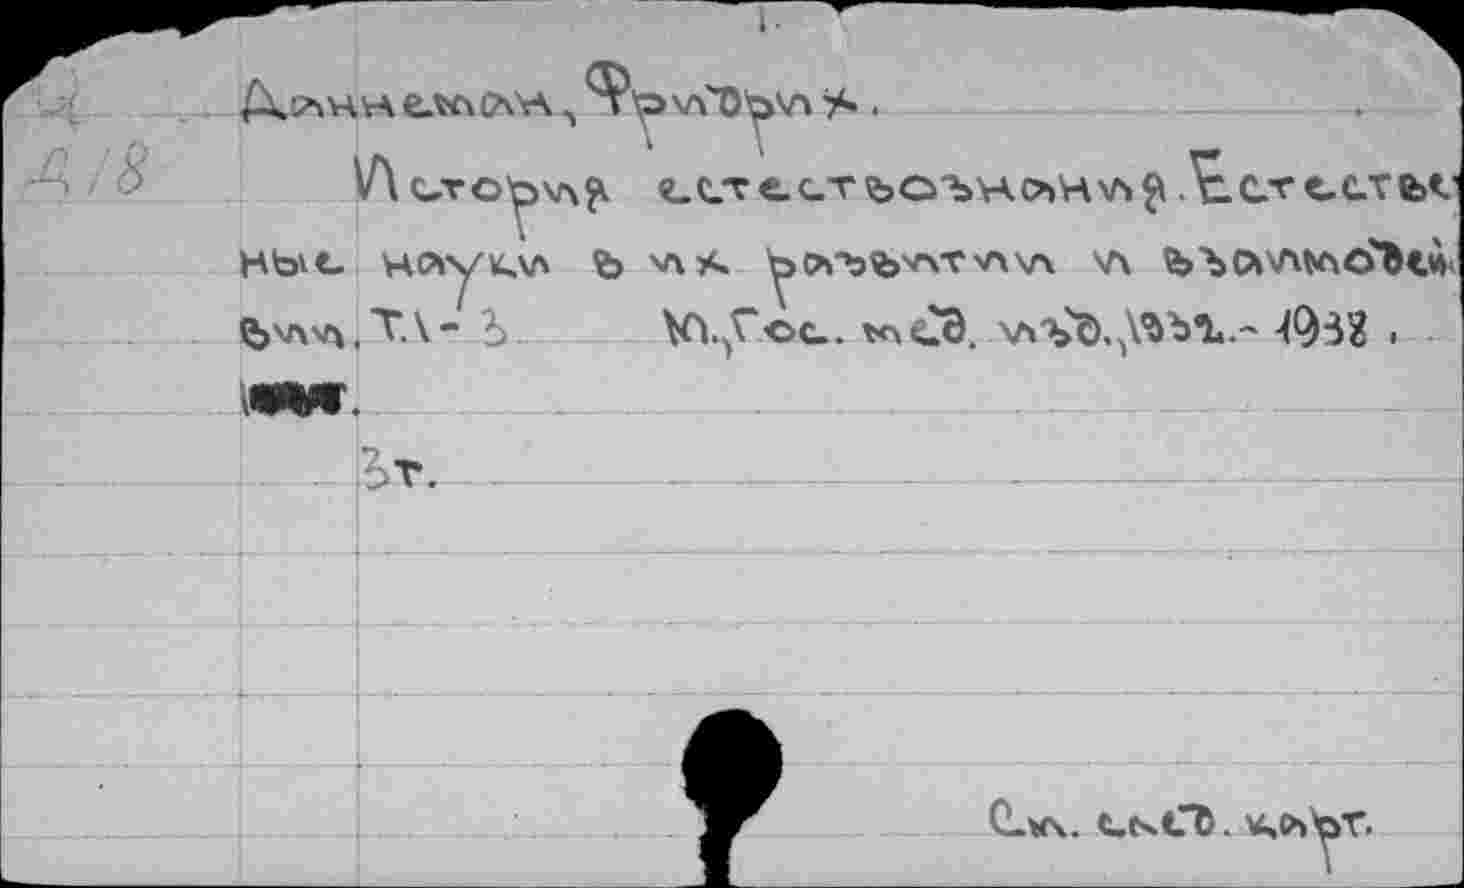 Даннеман, Фридрих.
Д/8
История естествознания. Естествен
ные науки в их развитии и взаимодей
вии. Т.1- 3 М., Гос. мед. изд., 1932.- 1938 .
3т.
См. след. карт.